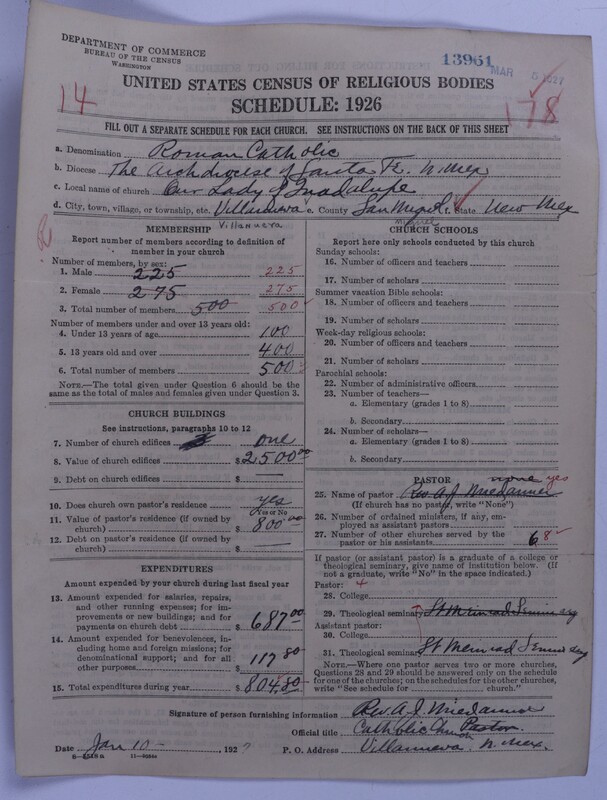 DEPARTMENT OF COMMERCE
BUREAU OF THE CENSUS
WASHINGTON
13961
MAR 5 1927
UNITED STATES CENSUS OF RELIGIOUS BODIES
SCHEDULE: 1926
14
178
FILL OUT A SEPARATE SCHEDULE FOR EACH CHURCH. SEE INSTRUCTIONS ON THE BACK OF THIS SHEET
a. Denomination Roman Catholic
b. Diocese The Archdiocese of Santa Fe. N. Mex
c. Local name of church Our Lady of Guadalupe
d. City, town, village, or township, etc. Villanueva e. County San Miguel f. State New Mex
Villanueva
Miguel
MEMBERSHIP
Report number of members according to definition of
member in your church
Number of members, by sex:
1. Male 225 225
2. Female 275 275
3. Total number of members 500 500
Number of members under and over 13 years old:
4. Under 13 years of age 100
5. 13 years old and over 400
6. Total number of members 500
NOTE.—The total given under Question 6 should be the
same as the total of males and females given under Question 3.
CHURCH BUILDINGS
See instructions, paragraphs 10 to 12
7. Number of church edifices one
8. Value of church edifices $ 2500.00
9. Debt on church edifices $
10. Does church own pastor's residence yes
Yes or No
11. Value of pastor's residence (if owned by
church) $ 800.00
12. Debt on pastor's residence (if owned by
church) $
EXPENDITURES
Amount expended by your church during last fiscal year
13. Amount expended for salaries, repairs,
and other running expenses; for im-
provements or new buildings; and for
payments on church debt $ 687.00
14. Amount expended for benevolences, in-
cluding home and foreign missions; for
denominational support; and for all
other purposes 117 80
15. Total expenditures during year $ 804.80
CHURCH SCHOOLS
Report here only schools conducted by this church
Sunday schools:
16. Number of officers and teachers
17. Number of scholars
Summer vacation Bible schools:
18. Number of officers and teachers
19. Number of scholars
Week-day religious schools:
20. Number of officers and teachers
21. Number of scholars
Parochial schools:
22. Number of administrative officers
23. Number of teachers—
a. Elementary (grades 1 to 8)
b. Secondary
24. Number of scholars—
a. Elementary (grades 1 to 8)
b. Secondary
PASTOR
none yes
25. Name of pastor Rev. A. J. Miedanner
(If church has no pastor, write "None")
26. Number of ordained ministers, if any, em-
ployed as assistant pastors
27. Number of other churches served by the
pastor or his assistants 6 8
If pastor (or assistant pastor) is a graduate of a college or
theological seminary, give name of institution below. (If
not a graduate, write "No" in the space indicated.)
Pastor:
28. College
29. Theological seminary St Meinrad Seminary
Assistant pastor:
30. College
31. Theological seminary St Meinrad Seminary
NOTE.—Where one pastor serves two or more churches,
Questions 28 and 29 should be answered only on the schedule
for one of the churches; on the schedules for the other churches,
write "See schedule for church."
Signature of person furnishing information Rev. A. J. Miedanner
Official title Catholic Church Pastor
Date Jan 10 - 1927 P. O. Address Villanueva. N. Mex.